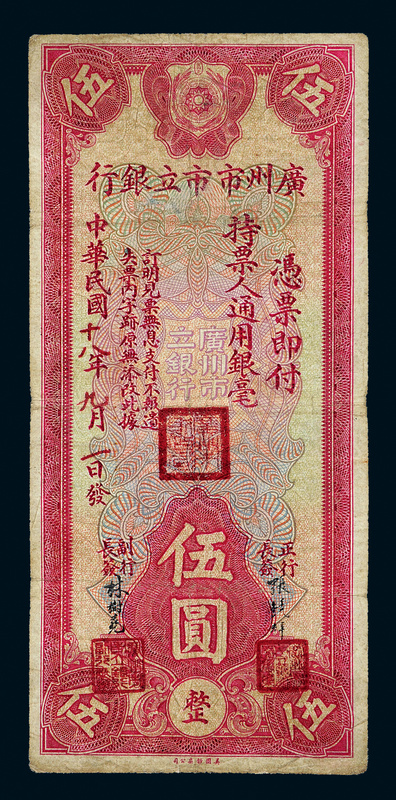 伍 伍
廣州市市立銀行
憑票即付
持票人通用銀毫
廣州市
立銀行
訂明見票無息支付不掛
失票內字跡原無添改此據
中華民國十八年九月一日發
伍圓
整
正行
長簽
副行
長簽
伍 伍
美國鈔票公司